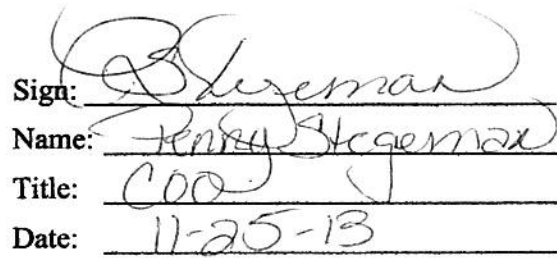 Sign: PStegeman
Name: Penny Stegeman
Title: COO
Date: 11-25-13